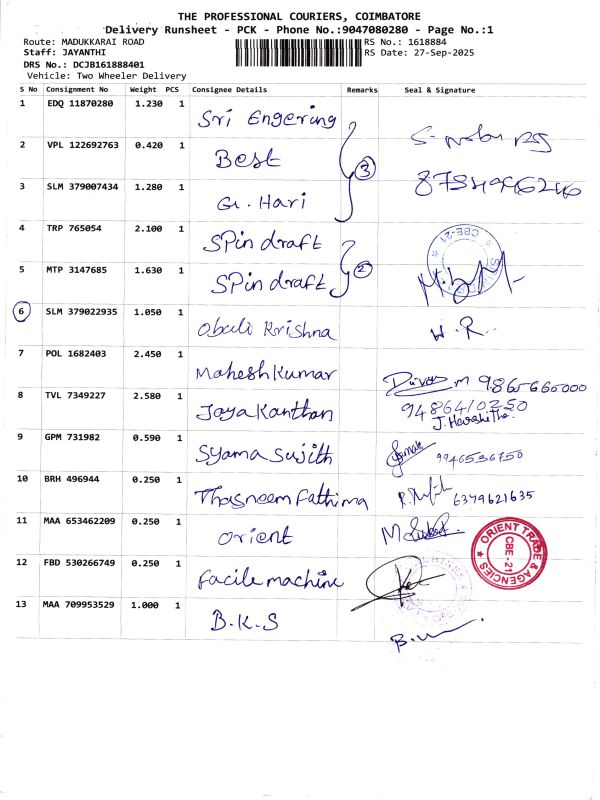 THE PROFESSIONAL COURIERS, COIMBATORE
Delivery Runsheet - PCK - Phone No.:9047080280 - Page No.:1
Route: MADUKKARAI ROAD RS No.: 1618884
Staff: JAYANTHI RS Date: 27-Sep-2025
DRS No.: DCJB161888401
Vehicle: Two Wheeler Delivery
S No Consignment No Weight PCS Consignee Details Remarks Seal & Signature
1 EDQ 11870280 1.230 1 Sri Engering
2 VPL 122692763 0.420 1 Best
3 SLM 379007434 1.280 1 G. Hari 3
4 TRP 765054 2.100 1 Spin draft CBE-21
5 MTP 3147685 1.630 1 Spin draft 2
6 SLM 379022935 1.050 1 Obuli Krishna H.R.
7 POL 1682403 2.450 1 Mahesh Kumar 9865660000
8 TVL 7349227 2.580 1 Jaya Kanthan 9486410250
J. Harshitha
9 GPM 731982 0.590 1 Syama Sujith 9946536750
10 BRH 496944 0.250 1 Thasneem Fathima 6379621635
11 MAA 653462209 0.250 1 Orient ORIENT TRADE & AGENCIES CBE-21
12 FBD 530266749 0.250 1 facile machine
13 MAA 709953529 1.000 1 B.K.S